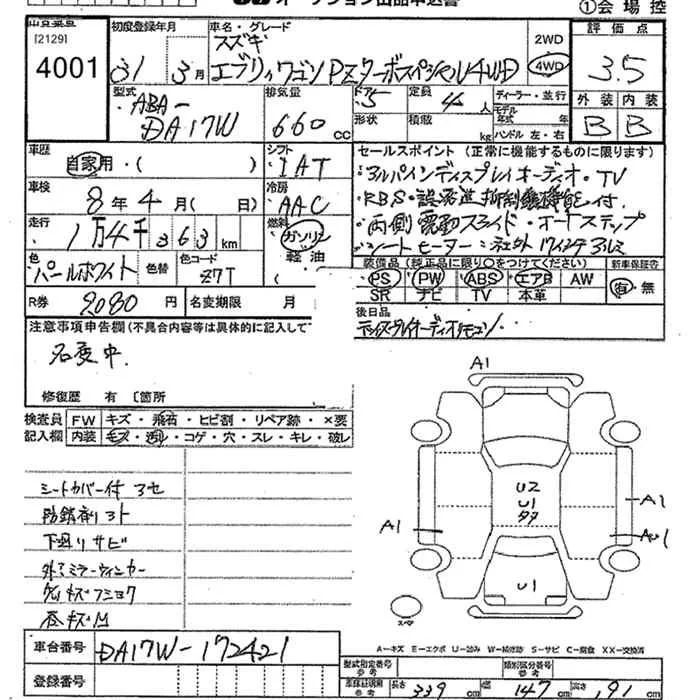 オークション出品申込書 ①会場控
[2129] 初度登録年月 車名・グレード 2WD 評価点
4001 31 3月 スズキ
エブリィワゴン PZターボスペシャル 4WD 4WD 3.5
型式 排気量 ドア 5 定員 4人 ディーラー・並行 外装 内装
ABA- モデル年式 年
DA17W 660cc 形状 積載 kg ハンドル 左・右 B B
車歴 シフト セールスポイント (正常に機能するものに限ります)
自家用・( ) IAT アルパインディスプレイオーディオ・TV
車検 冷房 RBS・誤発進抑制機能付
8年 4月( 日) AAC 両側電動スライド・オートステップ
走行 燃料 シートヒーター 社外17インチアルミ
1万4千363km ガソリン
色 色替 色コード 軽油 装備品 (純正品に限り○をつけてください) 新車保証書
パールホワイト Z7T PS PW ABS エアB AW 有・無
SR ナビ TV 本革
R券 2080円 名変期限 月 後日品
注意事項申告欄 (不具合内容等は具体的に記入して ディスプレイオーディオリモコン
名変中
修復歴 有 〔箇所
検査員 FW キズ・飛石・ヒビ割・リペア跡・×要
記入欄 内装 キズ・汚れ・コゲ・穴・スレ・キレ・破レ
A1
シートカバー付
防錆剤
下廻リサビ
外ミラーウィンカー
U2
U1
A1
A1
U1
スペア
A-キズ E-エクボ U-凹み W-補修跡 S-サビ C-腐食 XX-交換済
車台番号 DA17W-172421
登録番号 型式指定番号 参考 類別区分番号 参考
車検証明用 参考 長さ 339cm 幅 147cm 高さ 191cm